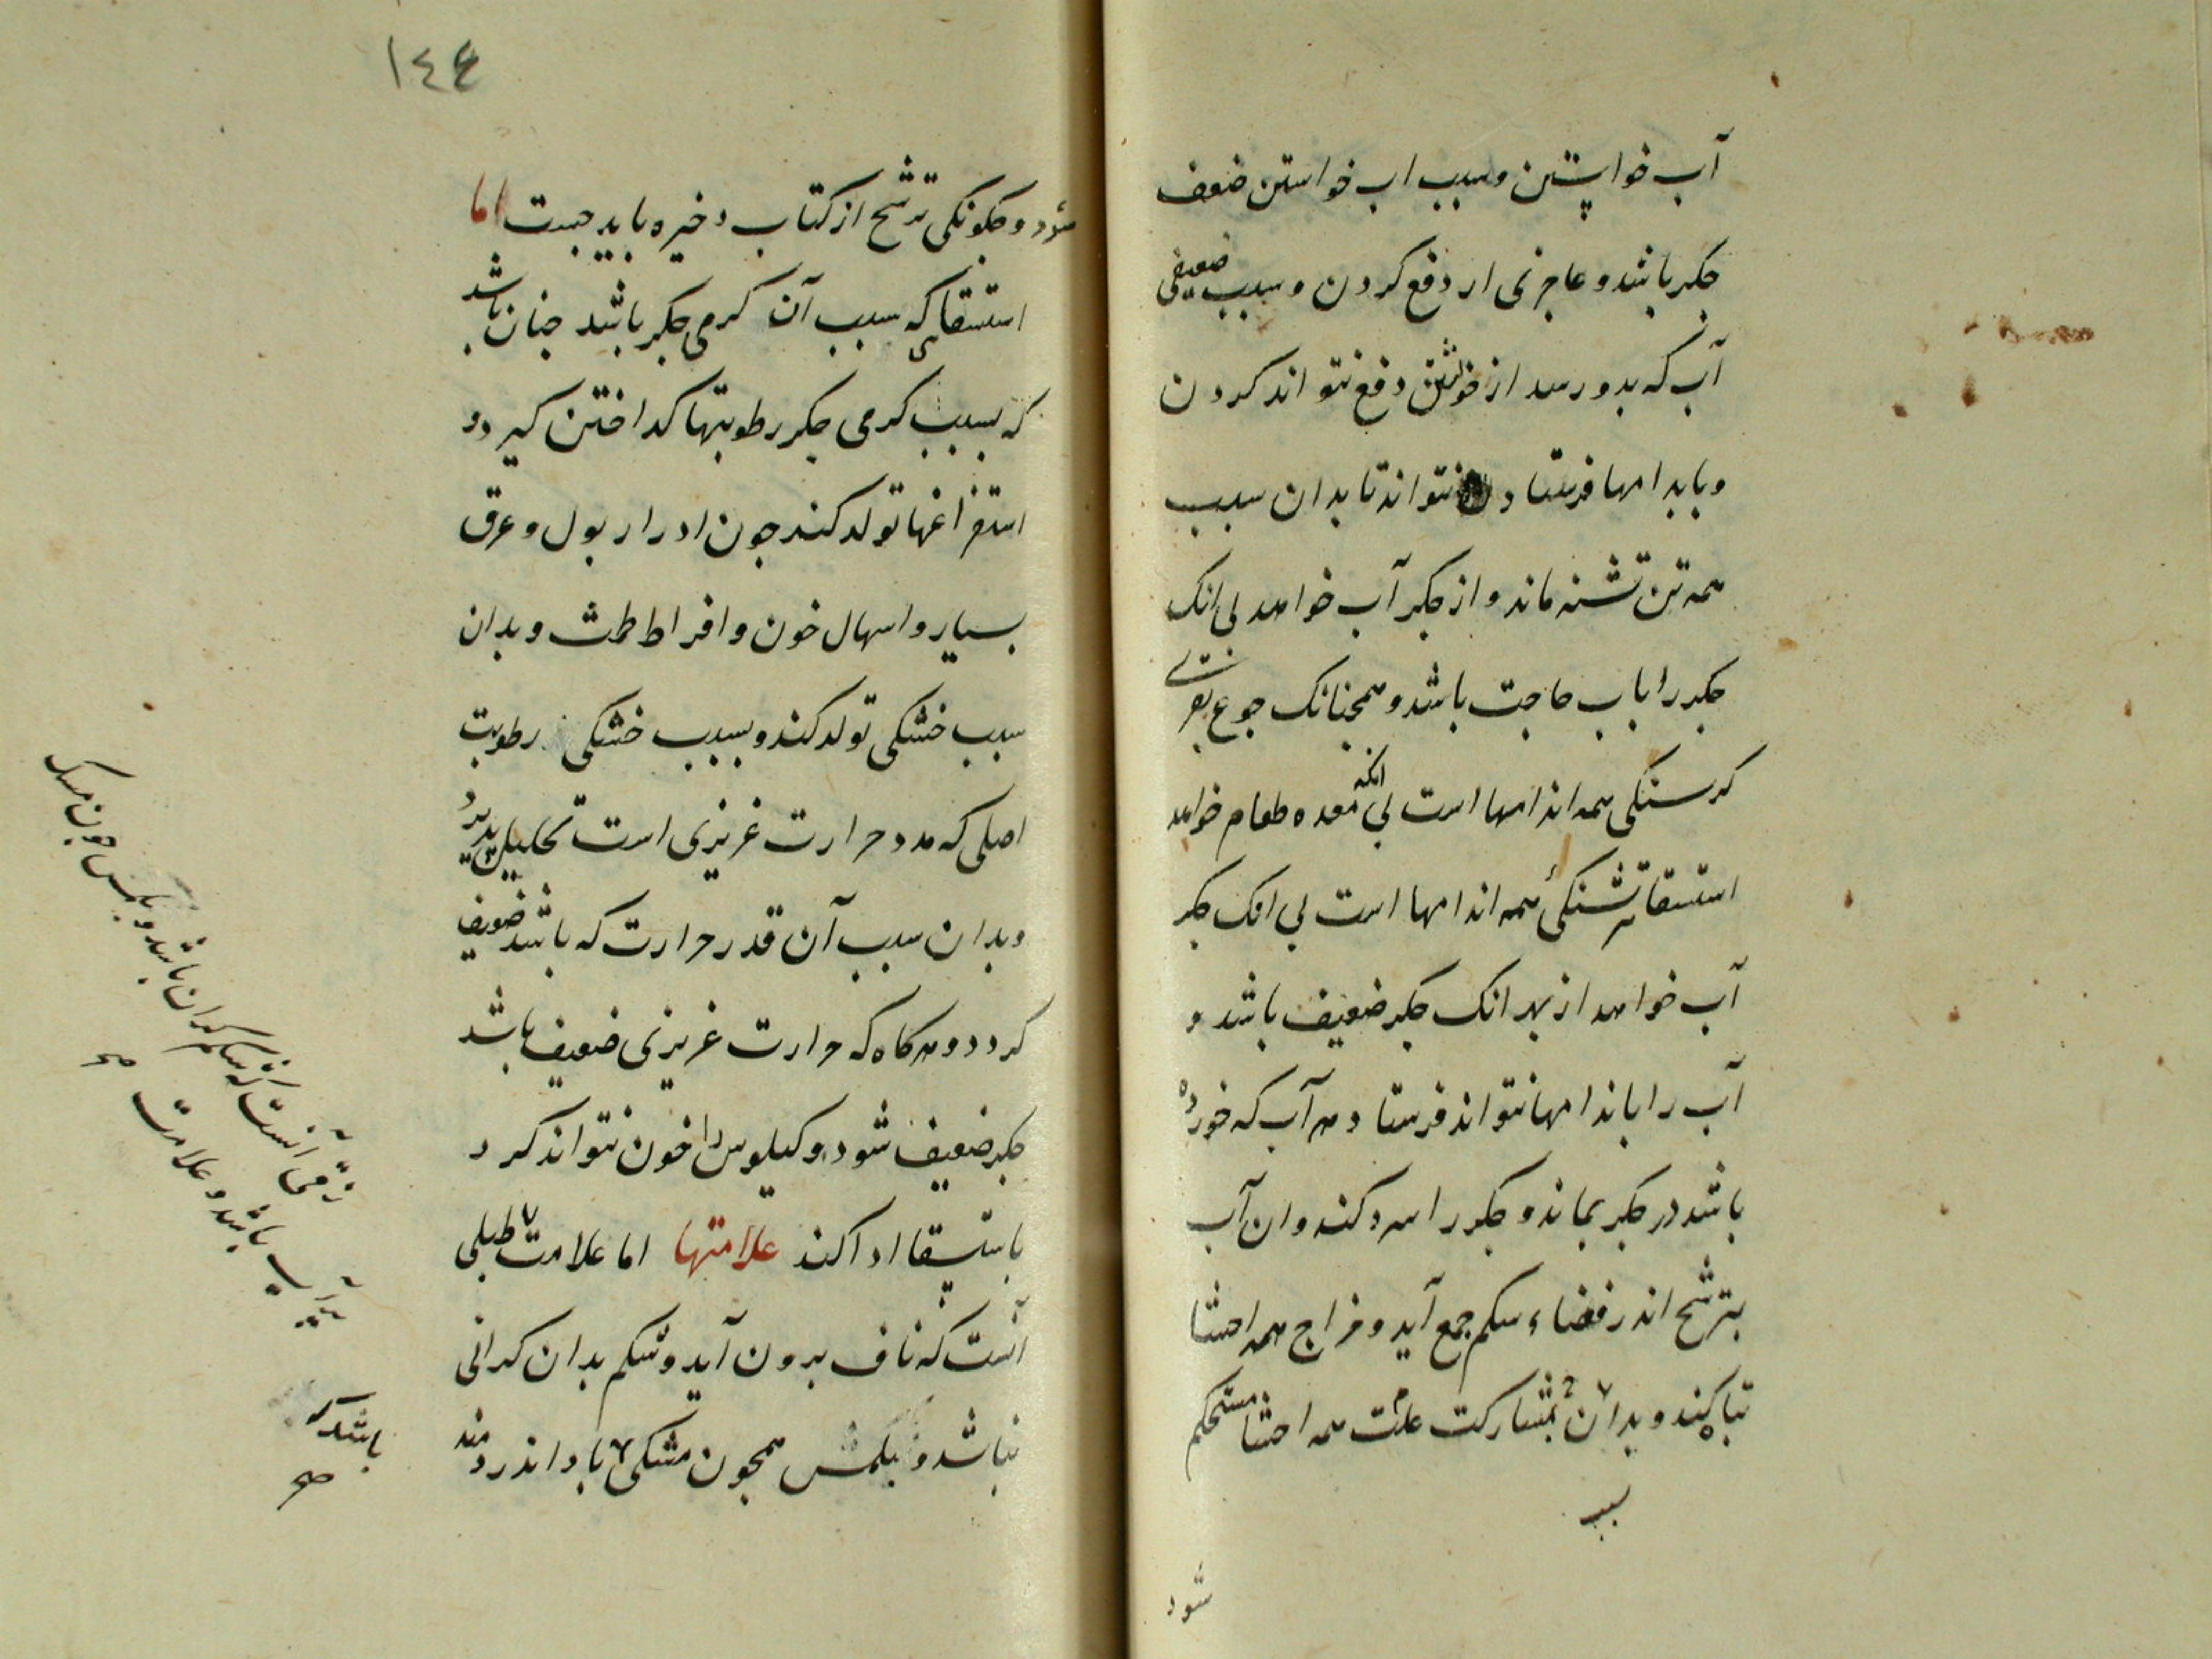 آب خواستن وسبب اب خواستن ضعف
جکر باشد و عاجزی از دفع کردن و سبب ضعیفی
آب که بدو رسد از خویشتن دفع نتواند کردن
و باندامها فرستادن نتواند تا بدان سبب
همه تن تشنه ماند و از جکر آب خواهد بی انک
جکر را باب حاجت باشد و همجنانک جوع بقری
کرسنکی همه اندامها است بی انکه معده طعام خواهد
استسقا تشنکئ همه اندامها است بی انک جکر
آب خواهد از بهر انک جکر ضعیف باشد و
آب را باندامها نتواند فرستاد هر آب که خورده
باشد در جکر بماند و جکر را سرد کند و ان آب
بترشح اندر فضاء شکم جمع آید و مزاج همه احشا
تباه کند و بدان بمشارکت علت همه احشا مستحکم
سبب
شود
١٤٤
شود و جکونکی ترشح از کتاب ذخیره باید جست اما
استسقائی که سبب آن کرمی جکر باشد جنان باشد
که بسبب کرمی جکر رطوبتها کداختن کیرد و
استفراغها تولد کند جون ادرار بول و عرق
بسیار و اسهال خون و افراط طمث و بدان
سبب خشکی تولد کند و بسبب خشکی رطوبت
اصلی که مدد حرارت غریزی است تحلیل پذیرد
و بدان سبب آن قدر حرارت که باشد ضعیف
کردد و هرکاه که حرارت غریزی ضعیف باشد
جکر ضعیف شود و کیلوس را خون نتواند کرد
باستسقا ادا کند علامتها اما علامت طبلی
آنست که ناف برون آید و شکم بدان کرانی
نباشد و بلمس همجون مشکی باد اندر دمند
زقی آنست که شکم کران باشد و بلمس جون مشک
پرآب باشد و علامت صح
باشد که
صح